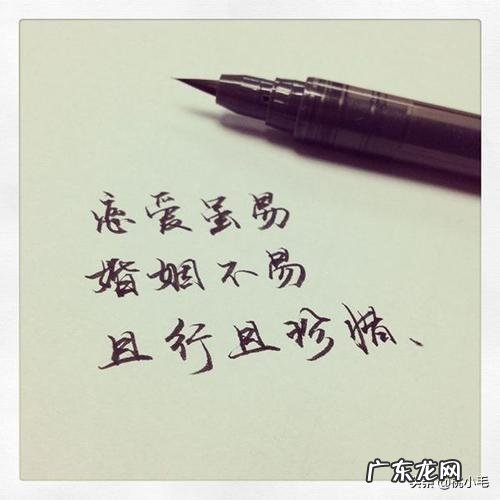 恋爱虽易
婚姻不易
且行且珍惜、
广东龙网
头条 @祝小毛